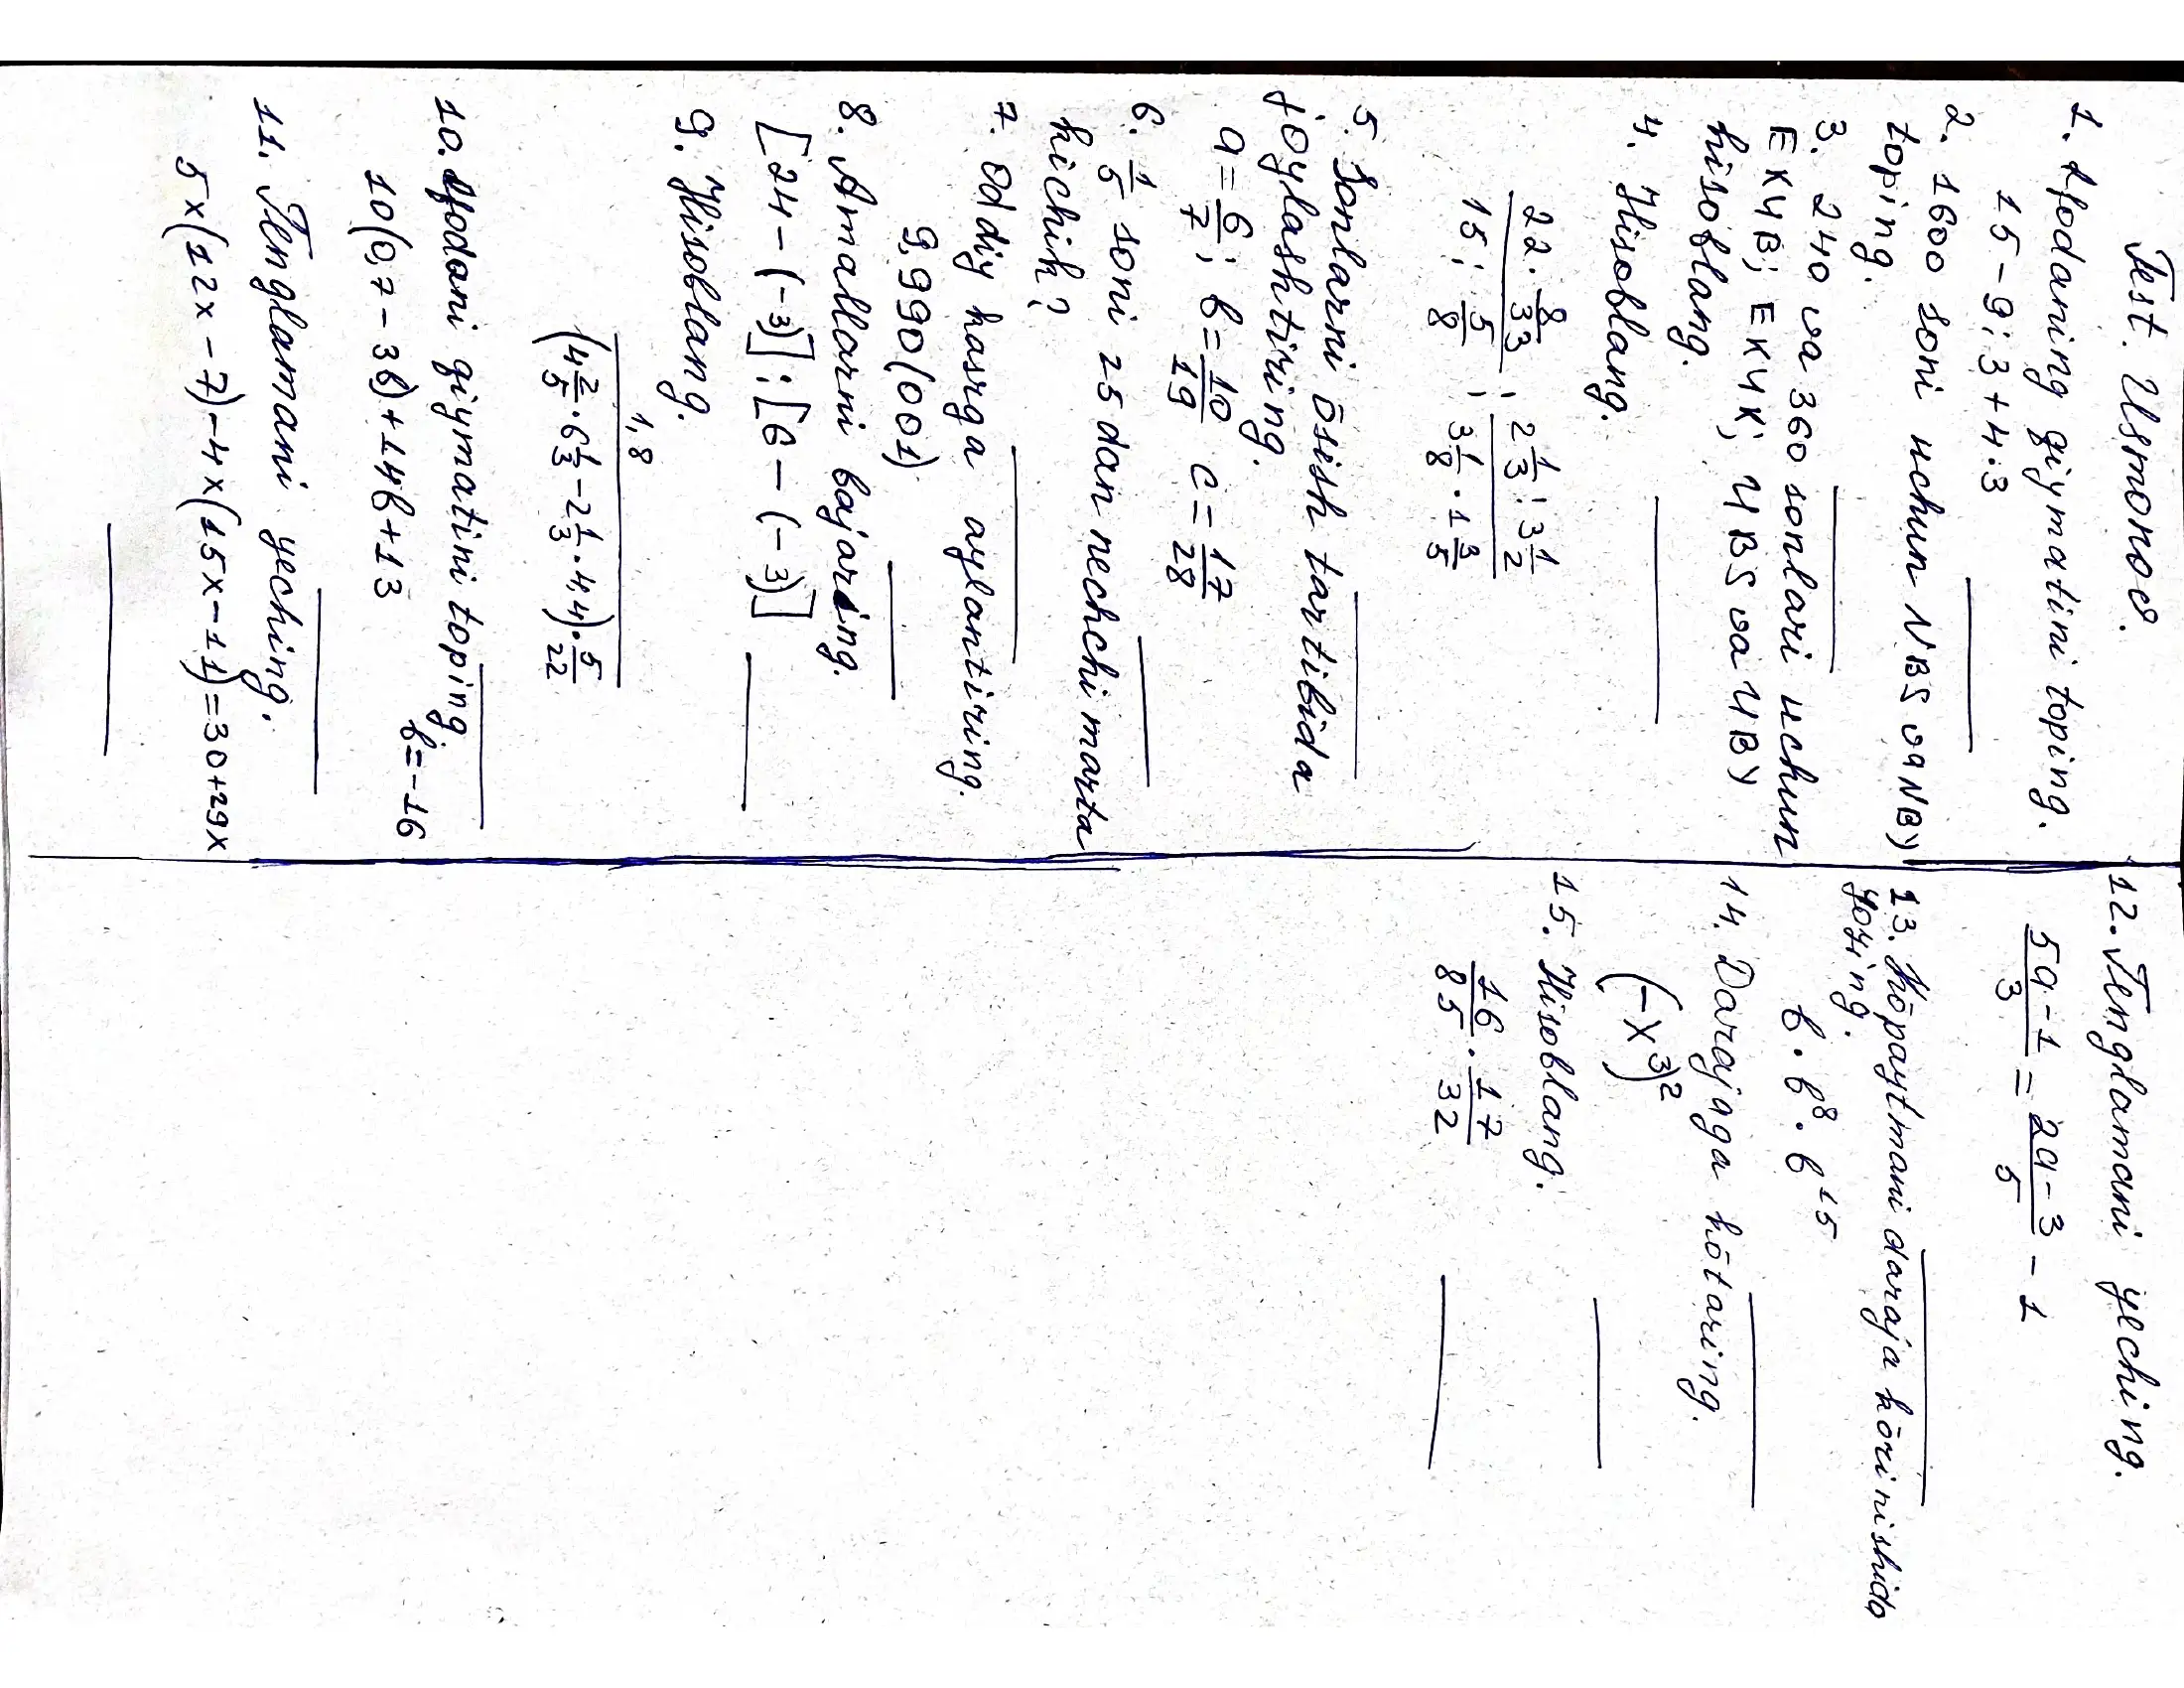 Test. Usmonov.
1. Ifodaning qiymatini toping.
15-9:3+4·3
2. 1600 soni uchun NBS va NBY
toping.
3. 240 va 360 sonlari uchun
EKUB; EKUK; UBS va UBY
hisoblang.
4. Hisoblang.
22·8/33 : 2 1/3 : 3 1/2
15 : 5/8 : 3 1/8 · 1 3/5
5. Sonlarni ōsish tartibida
joylashtiring.
a=6/7; b=10/19 c=17/28
6. 1/5 soni 25 dan nechchi marta
kichik?
7. Oddiy kasrga aylantiring.
9,990(001)
8. Amallarni bajaring.
[24-(-3)]:[6-(-3)]
9. Hisoblang.
1,8
(4 2/5 · 6 1/3 - 2 1/3 · 4,4) · 5/22
10. Ifodani qiymatini toping
10(0,7-3b)+14b+13 b=-16
11. Tenglamani yeching.
5x(12x-7)-4x(15x-11)=30+29x
12. Tenglamani yeching.
5a-1/3 = 2a-3/5 - 1
13. Kōpaytmani daraja kōrinishida
yozing.
b·b⁸·b¹⁵
14. Darajaga kōtaring.
(-x³)²
15. Hisoblang.
16/85 · 17/32